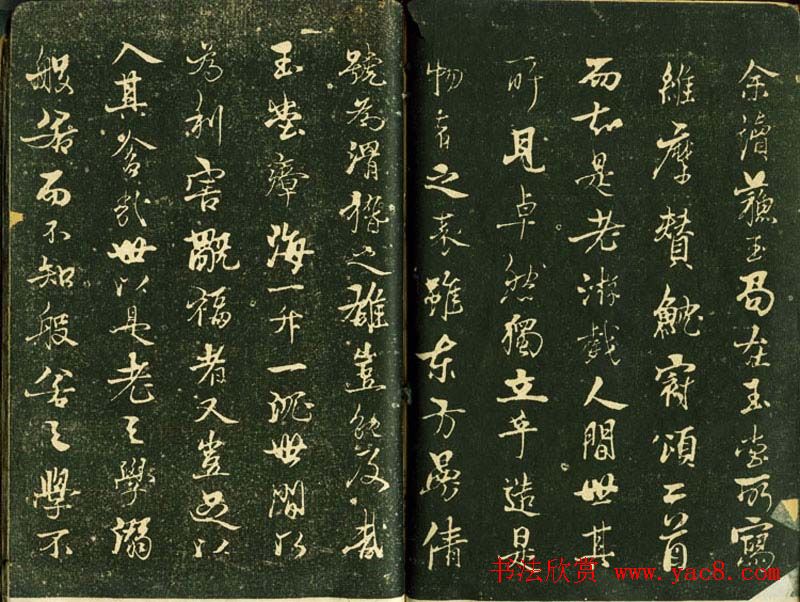 余讀蘇玉局在玉堂所寫
維摩贊魷冠頌二首
而知是老游戲人間世其
所見卓然獨立乎造是
物者之表雖東方曼倩
號為滑稽之雄豈能及哉
玉堂瘴海一升一沉世間以
為利害旤福者又豈足以
入其舍哉世以是老之學溺
般若而不知般若之學不
书法欣赏 www.yac8.com